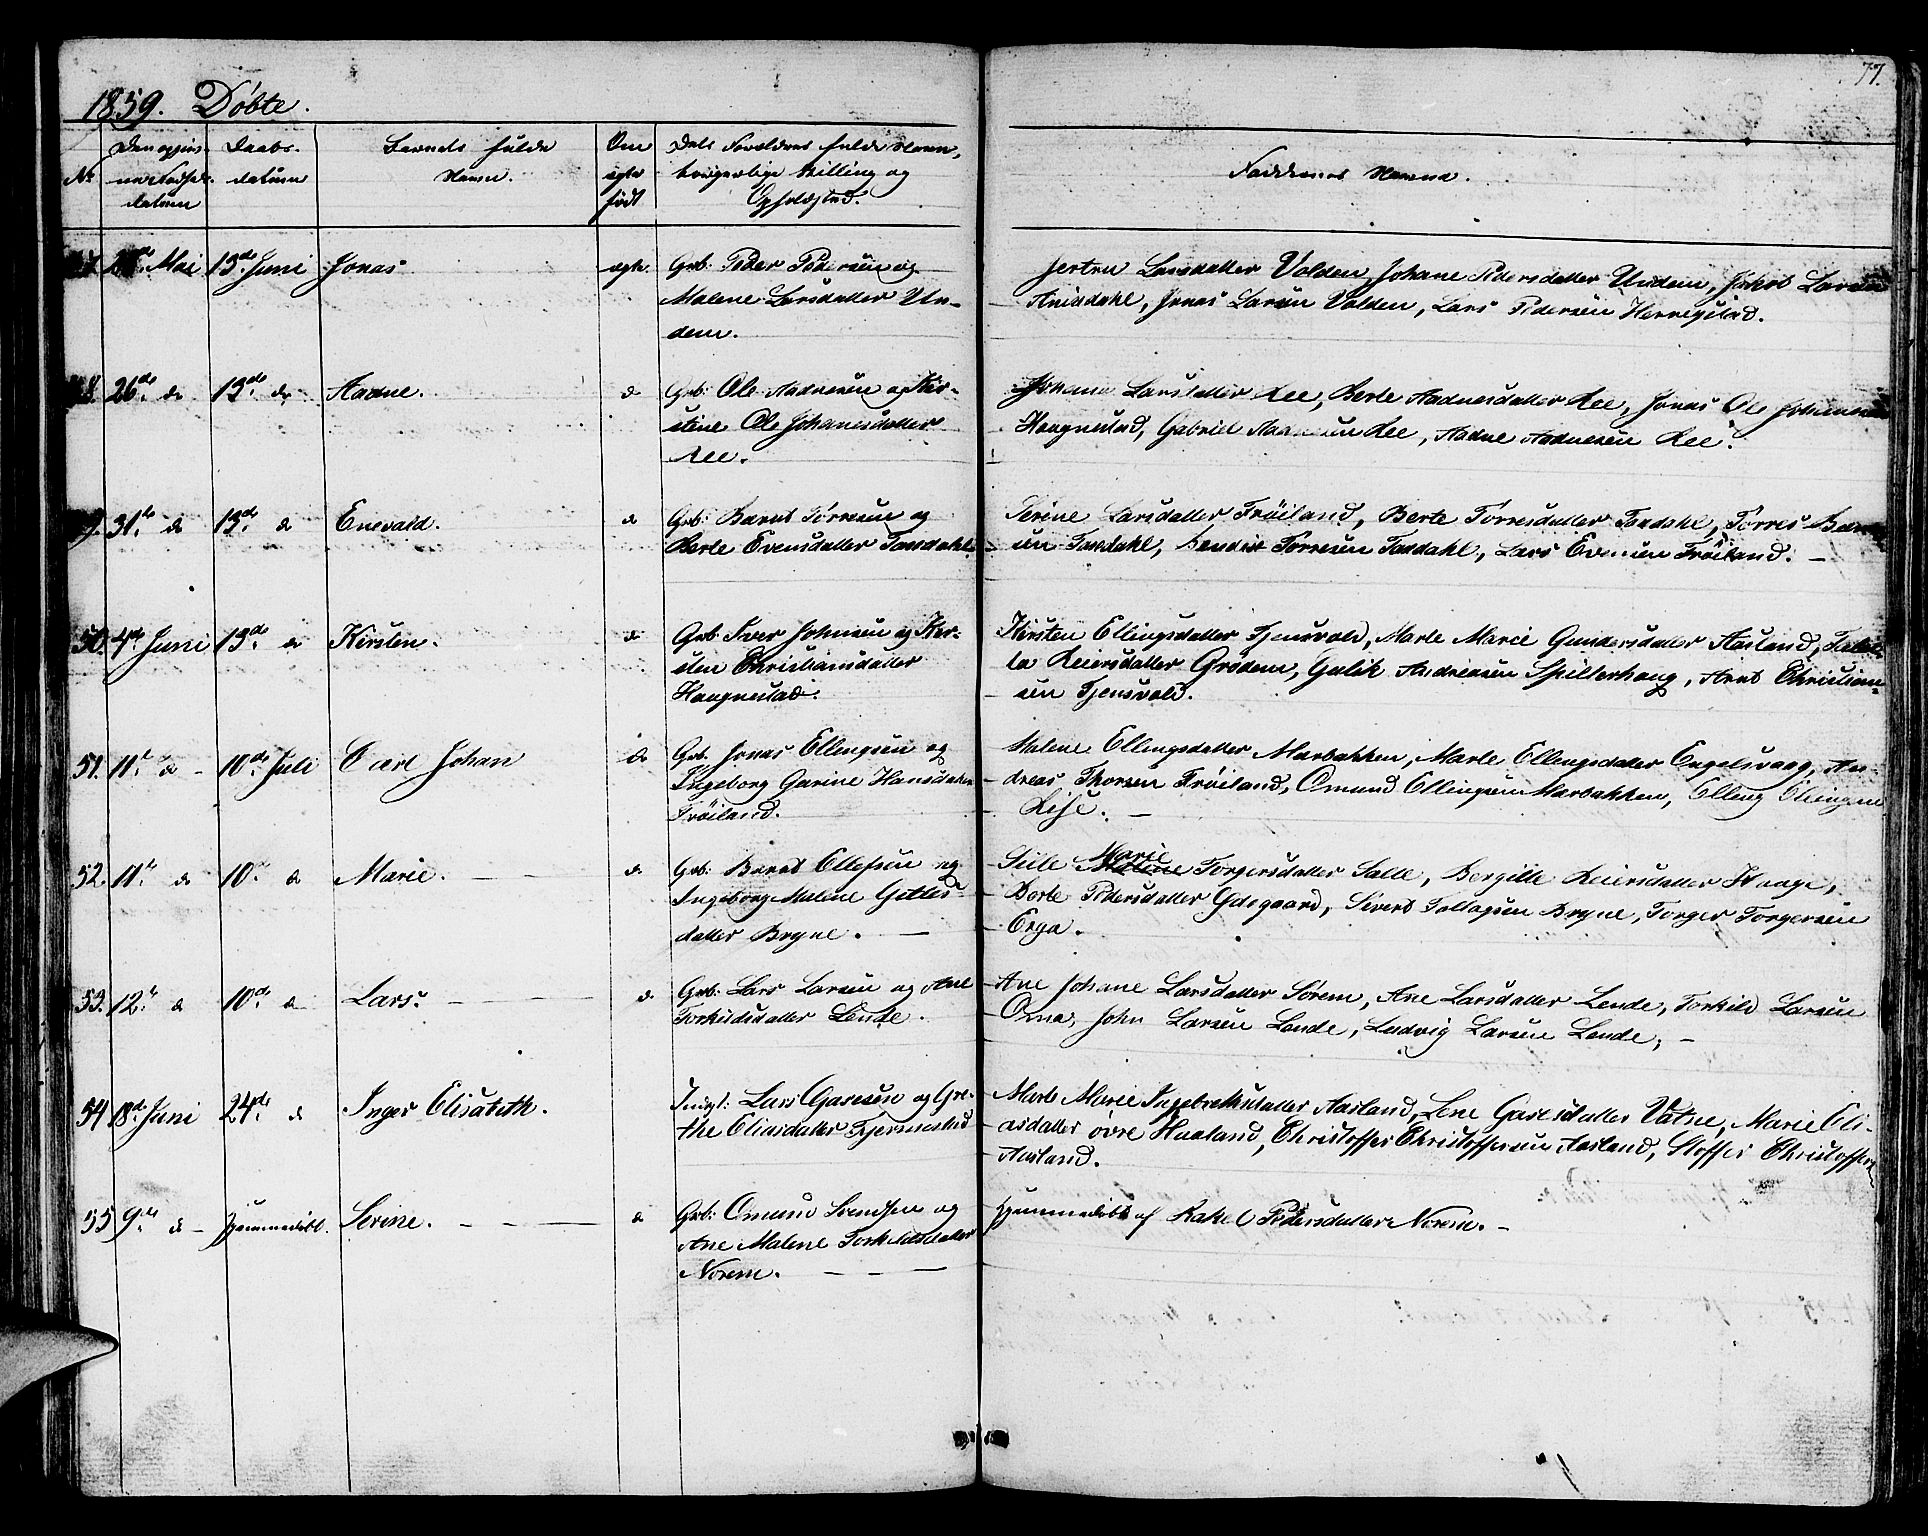 77.
1859. Døbte.
No
Den opgivne Fødsels-datum
Daabs-datum
Barnets fulde Navn.
Om ægte født
Dets Forældres fulde Navn, borgerlige Stilling og Opholdsted.
Faddernes Navne.
Mai 13de Juni Jonas ægte Grb: Peder Pedersen og
Malene Larsdatter Un-
dem.
Jertru Larsdatter Volden, Johane Pedersdatter Undem, Jakob Larsen
Anisdahl, Jonas Larsen Volden, Lars Pedersen Herregstad.
48. 26de do 13de do Aadne. do Grb: Ole Aadnesen og Kir-
stine Ole Johanesdatter
Lee.
Johane Larsdatter Lee, Berte Aadnesdatter Lee, Jonas Ole Johannesen
Haugnestad, Gabriel Aadnesen Lee, Aadne Aadnesen Lee.
49. 31te do 13de do Enevald. do Grb: Barnt Tørresen og
Berte Evensdatter Taxdahl.
Serine Larsdatter Frøiland, Berte Tørresdatter Taxdahl, Tørres Barnt-
sen Taxdahl, Bendix Tørresen Taxdahl, Lars Evensen Frøiland. —
50. 4de Juni 13de do Kirsten. do Grb: Iver Johnsen og Kir-
sten Christiansdatter
Haugnestad.
Kirsten Ellingsdatter Tjensvold, Marte Marie Gundersdatter Aasland, Tabi-
ta Reiersdatter Grødem, Gulik Andreasen Spilterhaug, Arnt Christian-
sen Tjensvold.
51. 11te do – 10de Juli Carl Johan do Grb. Jonas Ellingsen og
Ingeborg Garine Hansdatter
Frøiland.
Malene Ellingsdatter Marbakken, Marte Ellingsdatter Engelsvaag, An-
dreas Thorsen Frøiland, Omund Ellingsen Marbakken, Elling Ellingsen
Lise. —
52. 11te do 10de do Marie. do Grb: Barnt Ellefsen og
Ingeborg Malene Gitles-
datter Bryne. —
Siile Marie Torgersdatter Salte, Bergitte Reiersdatter Haage,
Dorte Pedersdatter Gdsgaard, Sivert Tollagsen Bryne, Torger Torgersen
Erga.
53. 12te do 10de do Lars. do Grb: Lars Larsen og Ane
Torkildsdatter Lende.
Ane Johane Larsdatter Sørem, Ane Larsdatter Lende, Torkild Larsen
Oma, John Larsen Lende, Ludvig Larsen Lende, —
54 18de Juni 24de do Inger Elisabeth. Indst: Lars Garesen og Gre-
the Eliasdatter Tjermestad
Marte Marie Ingebretsdatter Aasland, Lene Garesdatter Vatne, Marie Eli-
asdatter øvre Haaland, Christoffer Christoffersen Aasland, Stoffer Christoffersen
Aasland.
55 9de do – Hjemmedøbt. Serine. do Grb: Omund Svendsen og
Ane Malene Torkildsdatter
Norem. — — —
Hjemmedøbt af Rakel Pedersdatter Norem. —